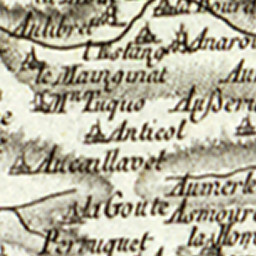 Aulibret
l'Estang
Anarou
le Mainginat
Au
Mⁿ Tuquo
Ausseri
Anticol
Aucaillavet
Aumerle
la Goute
Asmoure
Perruquet